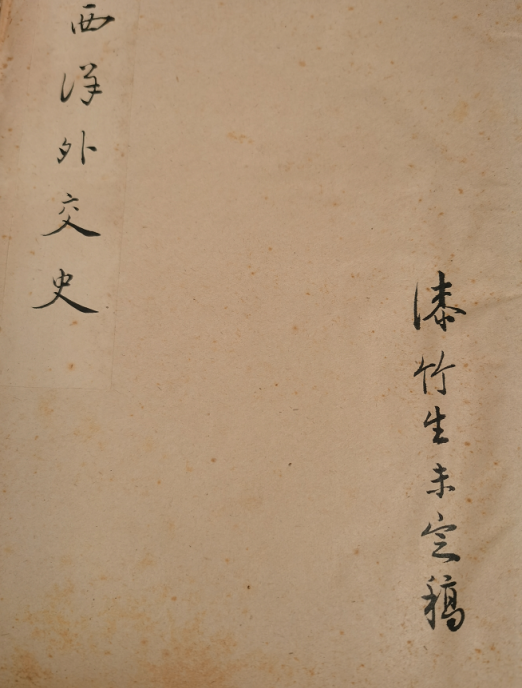 西洋外交史
漆竹生未定稿